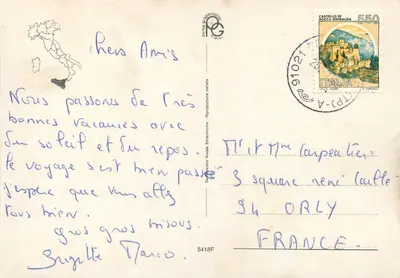 CASTELLO DI
ROCCA SINIBALDA
550
ITALIA
91021
(TP)-A
Chers Amis
Nous passons de très
bonnes vacances avec
du soleil et du repos.
le voyage s'est bien passé
j'espère que vous allez
tous bien.
gros gros bisous.
Brigitte Marco.
Mr et Mme Carpentier
3 square rené
94 ORLY
FRANCE.
8418F
Riproduzione vietata